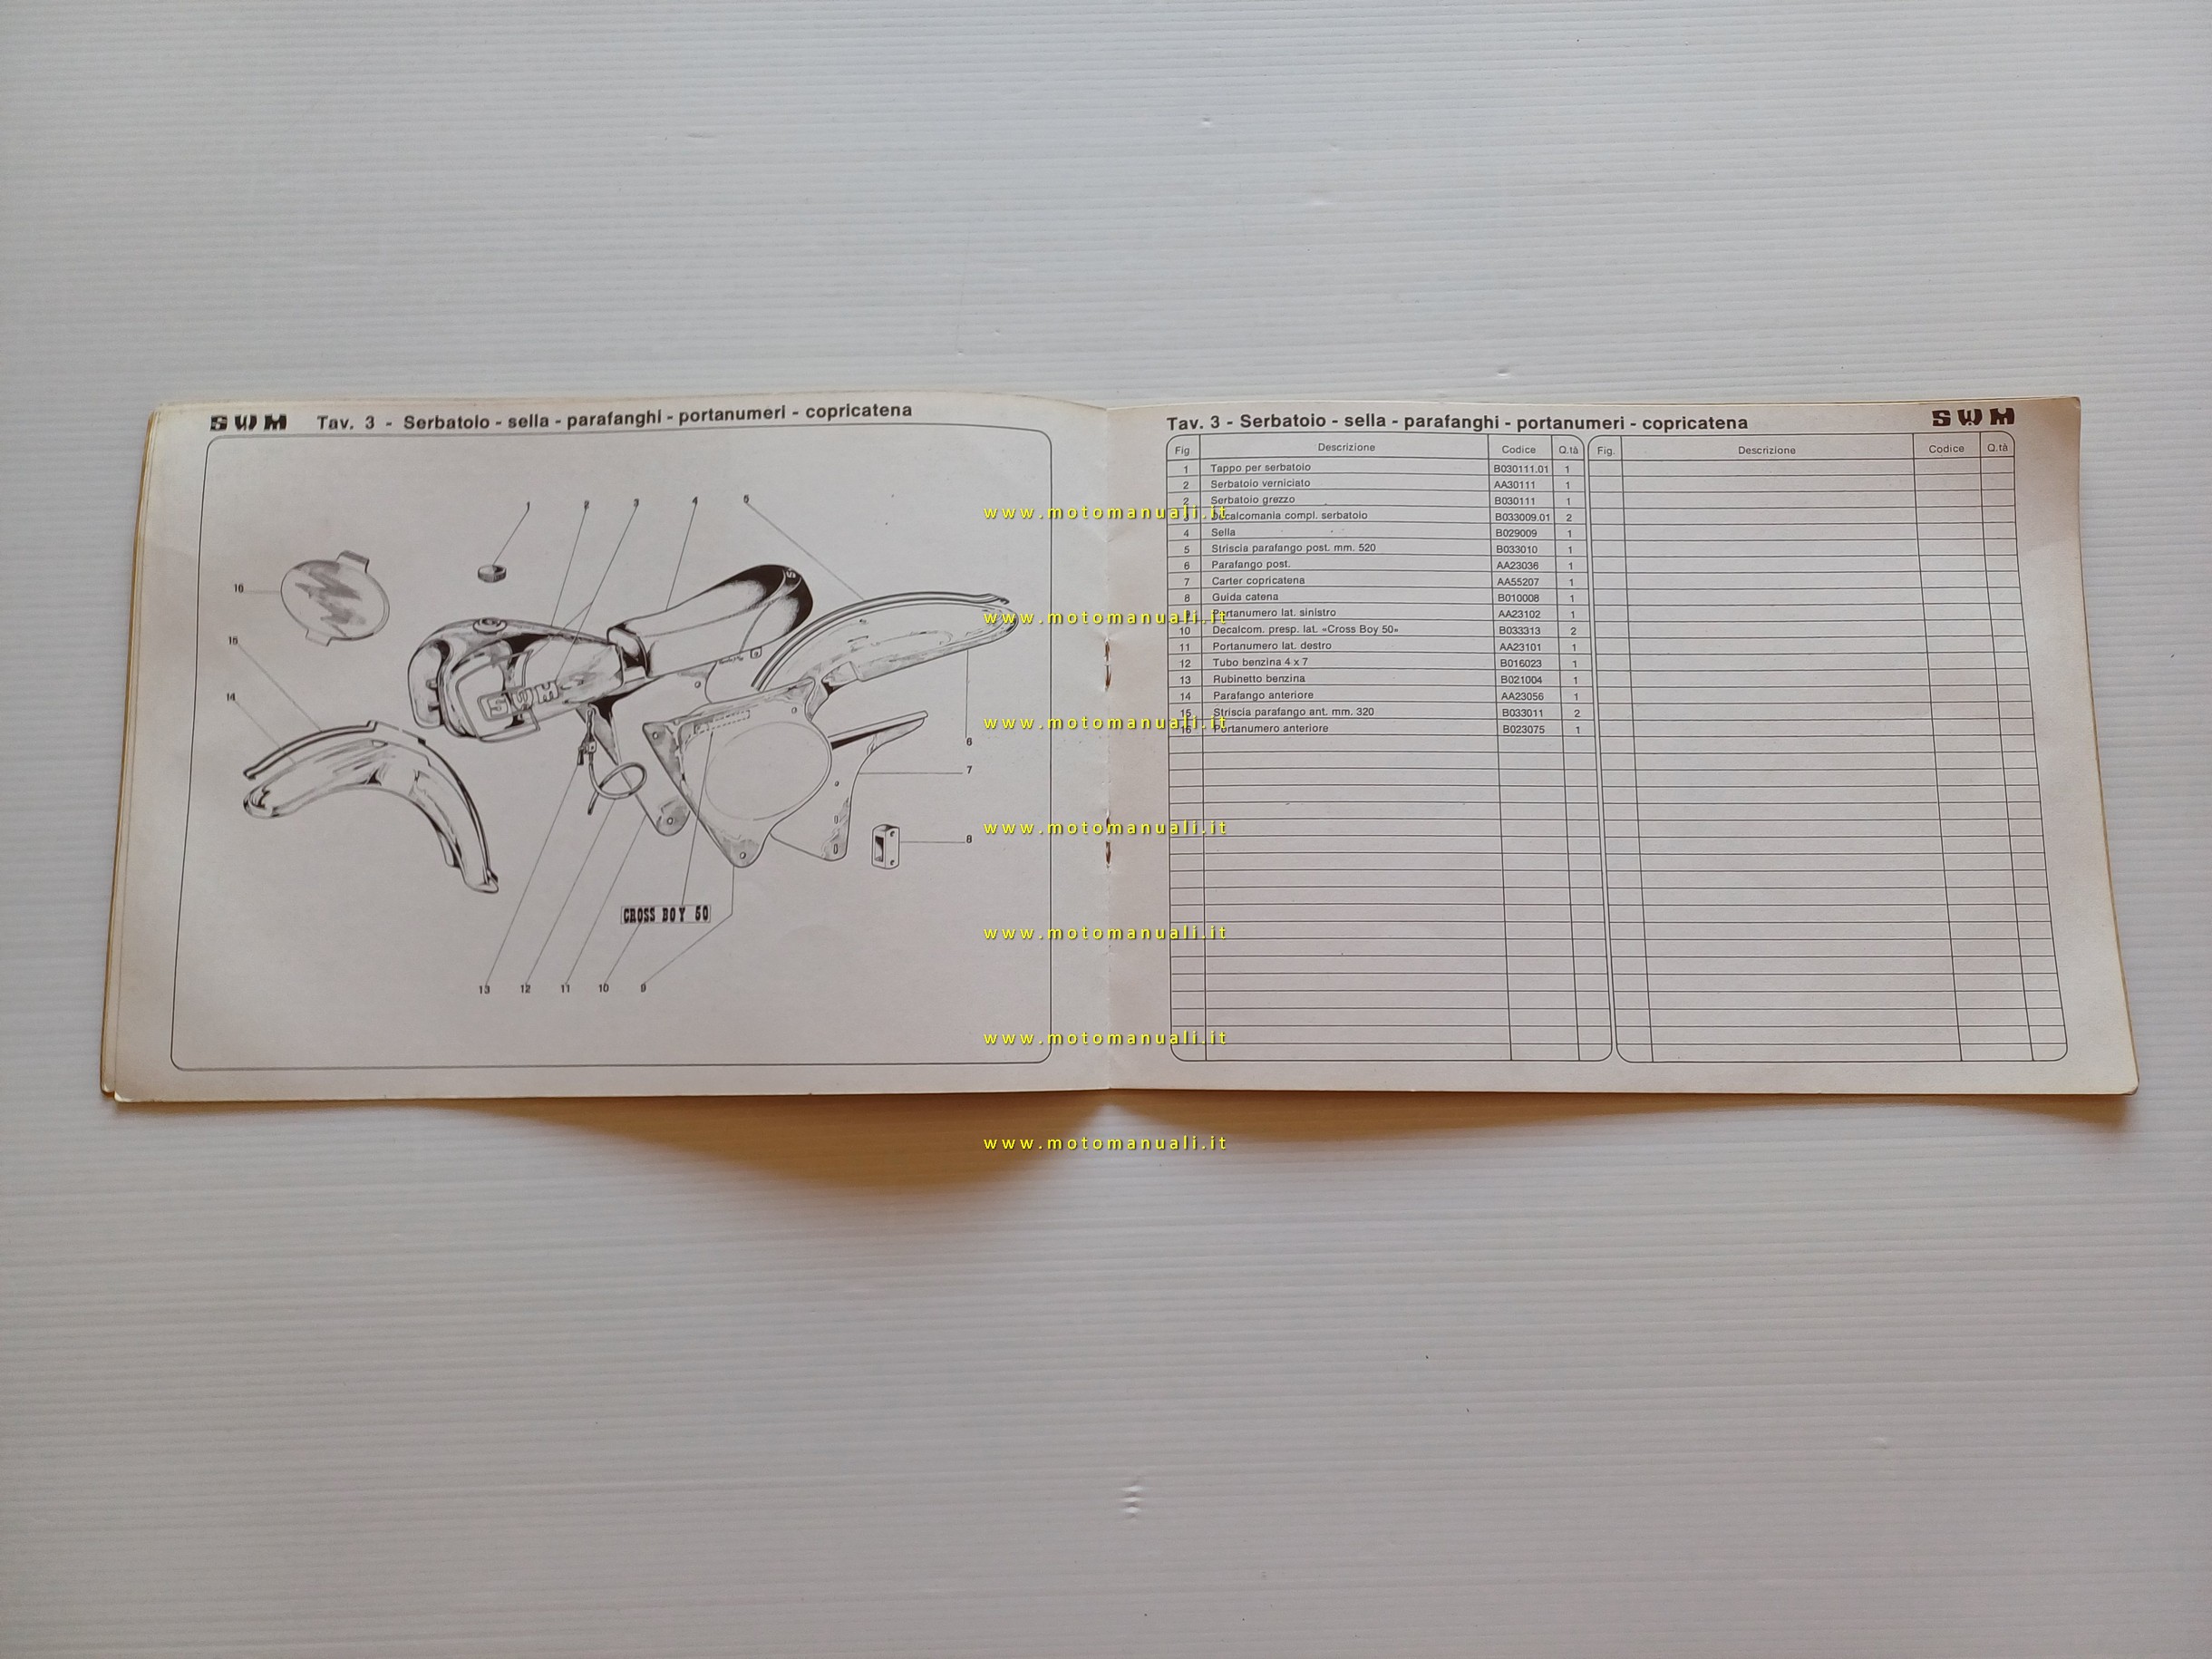 SWM Tav. 3 - Serbatoio - sella - parafanghi - portanumeri - copricatena
1 2 3 4 5
16
15
14
SWM
6
7
8
CROSS BOY 50
13 12 11 10 9
Tav. 3 - Serbatoio - sella - parafanghi - portanumeri - copricatena SWM
Fig Descrizione Codice Q.tà Fig. Descrizione Codice Q.tà
1 Tappo per serbatoio B030111.01 1
2 Serbatoio verniciato AA30111 1
2 Serbatoio grezzo B030111 1
3 Decalcomania compl. serbatoio B033009.01 2
4 Sella B029009 1
5 Striscia parafango post. mm. 520 B033010 1
6 Parafango post. AA23036 1
7 Carter copricatena AA55207 1
8 Guida catena B010008 1
9 Portanumero lat. sinistro AA23102 1
10 Decalcom. presp. lat. «Cross Boy 50» B033313 2
11 Portanumero lat. destro AA23101 1
12 Tubo benzina 4 x 7 B016023 1
13 Rubinetto benzina B021004 1
14 Parafango anteriore AA23056 1
15 Striscia parafango ant. mm. 320 B033011 2
16 Portanumero anteriore B023075 1
www.motomanuali.it
www.motomanuali.it
www.motomanuali.it
www.motomanuali.it
www.motomanuali.it
www.motomanuali.it
www.motomanuali.it